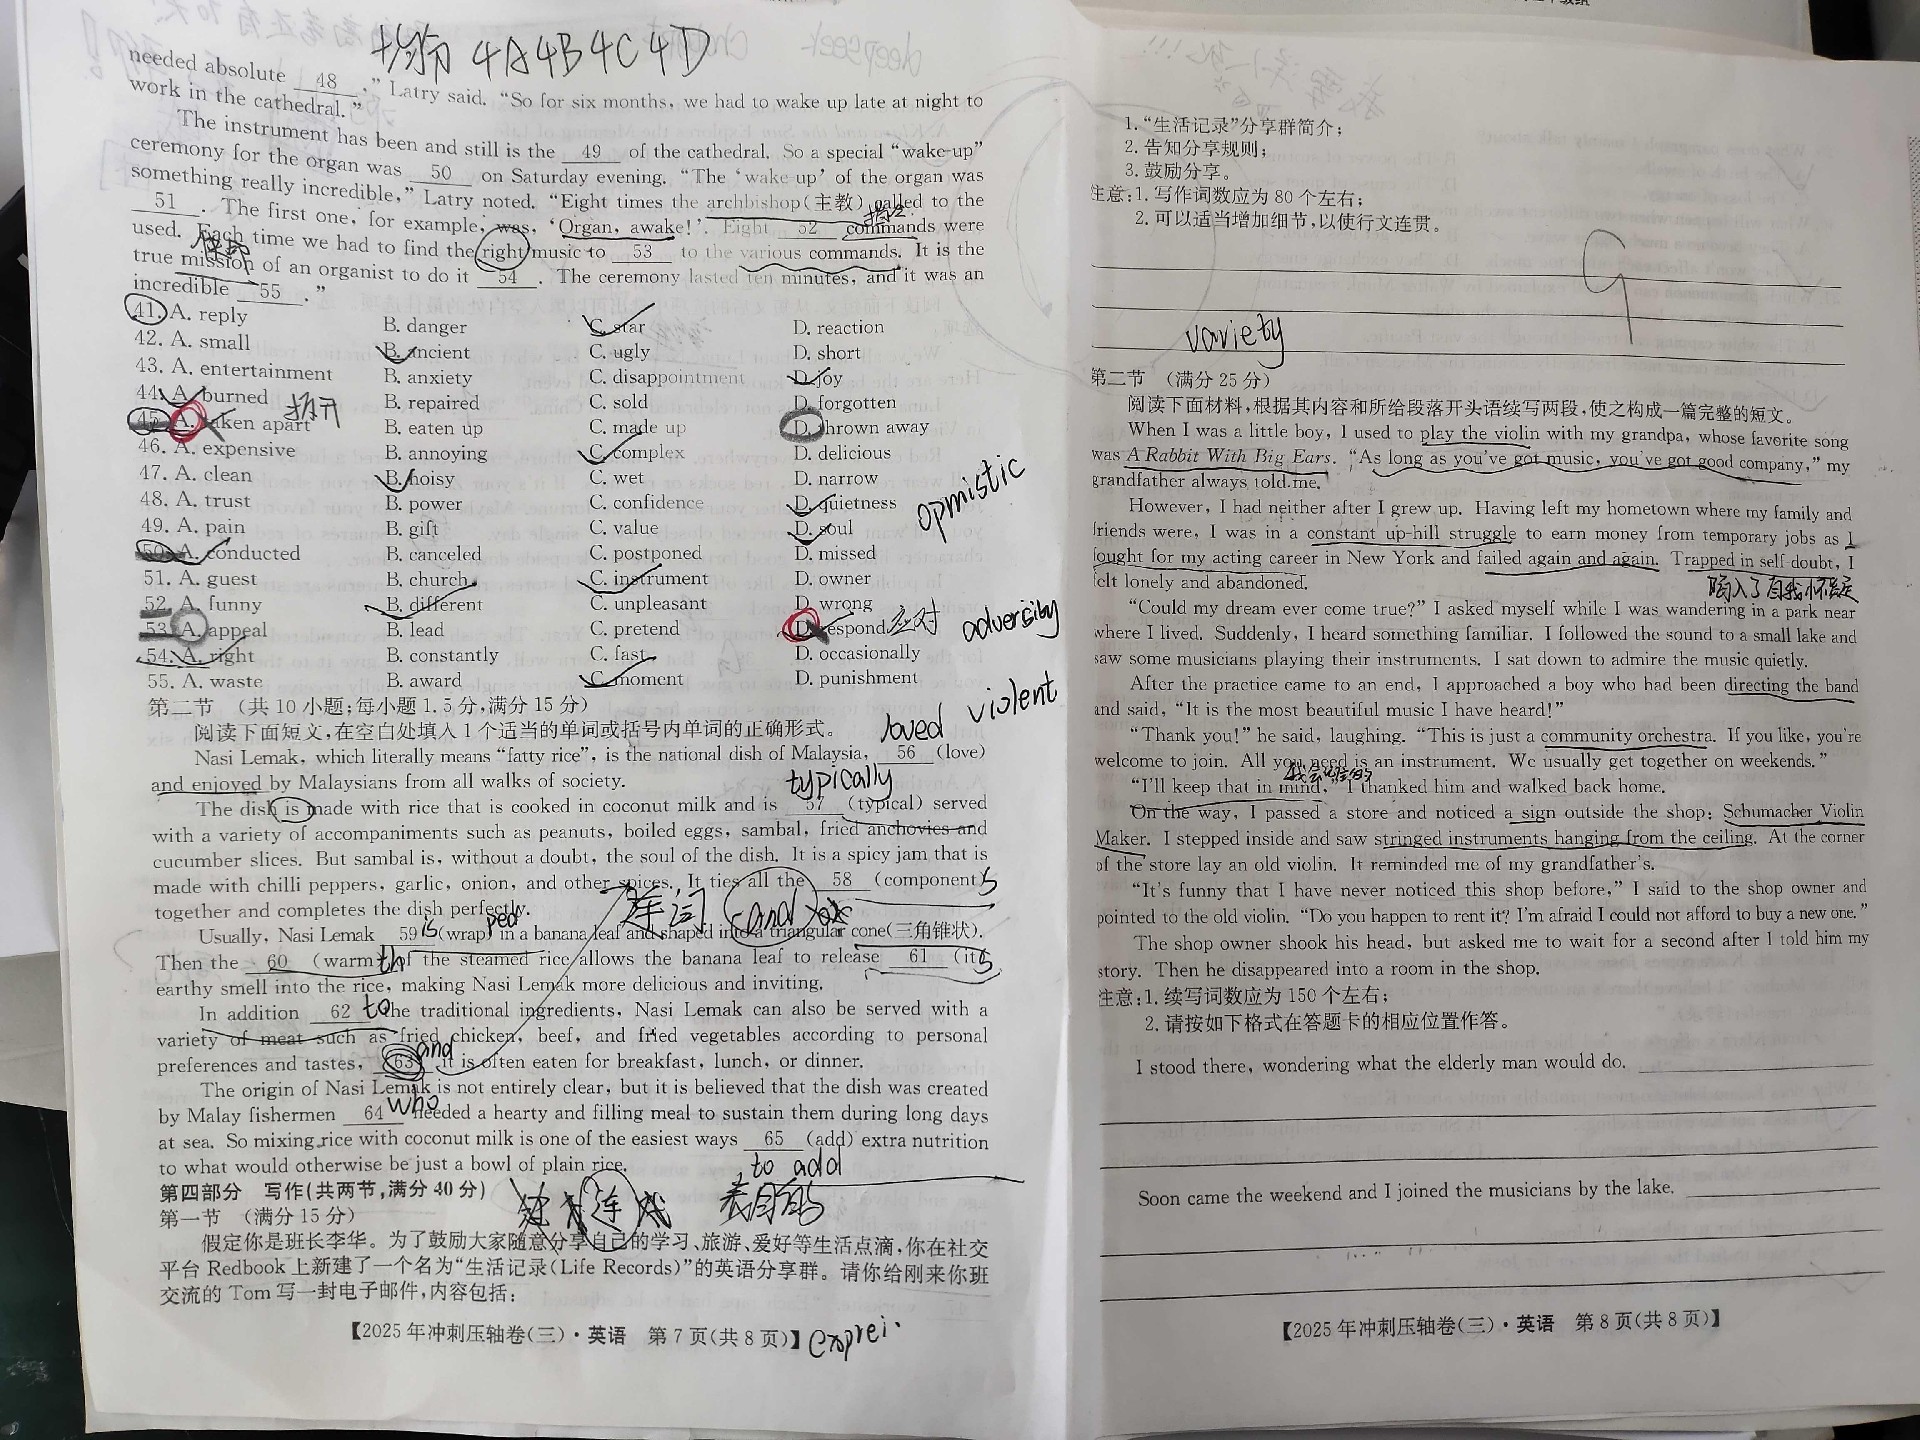 扬奇 4A4B4C4D
needed absolute 48 ,” Latry said. “So for six months, we had to wake up late at night to
work in the cathedral.”
The instrument has been and still is the 49 of the cathedral. So a special “wake-up”
ceremony for the organ was 50 on Saturday evening. “The ‘wake-up’ of the organ was
something really incredible,” Latry noted. “Eight times the archbishop(主教) called to the
51 . The first one, for example, was, ‘Organ, awake!’. Eight 52 commands were
used. Each time we had to find the right music to 53 to the various commands. It is the
true mission of an organist to do it 54 . The ceremony lasted ten minutes, and it was an
incredible 55 .”
41. A. reply B. danger C. star D. reaction
42. A. small B. ancient C. ugly D. short
43. A. entertainment B. anxiety C. disappointment D. joy
44. A. burned B. repaired C. sold D. forgotten
45. A. taken apart 拆开 B. eaten up C. made up D. thrown away
46. A. expensive B. annoying C. complex D. delicious
47. A. clean B. noisy C. wet D. narrow
48. A. trust B. power C. confidence D. quietness
opmistic
49. A. pain B. gift C. value D. soul
50. A. conducted B. canceled C. postponed D. missed
51. A. guest B. church C. instrument D. owner
52. A. funny B. different C. unpleasant D. wrong
53. A. appeal B. lead C. pretend D. respond 应对 adversity
54. A. right B. constantly C. fast D. occasionally
55. A. waste B. award C. moment D. punishment
violent
第二节 (共 10 小题;每小题 1.5 分,满分 15 分)
阅读下面短文,在空白处填入 1 个适当的单词或括号内单词的正确形式。
loved
Nasi Lemak, which literally means “fatty rice”, is the national dish of Malaysia, 56 (love)
and enjoyed by Malaysians from all walks of society.
typically
The dish is made with rice that is cooked in coconut milk and is 57 (typical) served
with a variety of accompaniments such as peanuts, boiled eggs, sambal, fried anchovies and
cucumber slices. But sambal is, without a doubt, the soul of the dish. It is a spicy jam that is
made with chilli peppers, garlic, onion, and other spices. It ties all the 58 (component)s
together and completes the dish perfectly.
连词 and
Usually, Nasi Lemak 59 is (wrap)ped in a banana leaf and shaped into a triangular cone(三角锥状).
Then the 60 (warm)th of the steamed rice allows the banana leaf to release 61 (it)s
earthy smell into the rice, making Nasi Lemak more delicious and inviting.
In addition 62 to the traditional ingredients, Nasi Lemak can also be served with a
variety of meat such as fried chicken, beef, and fried vegetables according to personal
preferences and tastes, 63 and it is often eaten for breakfast, lunch, or dinner.
The origin of Nasi Lemak is not entirely clear, but it is believed that the dish was created
by Malay fishermen 64 who needed a hearty and filling meal to sustain them during long days
at sea. So mixing rice with coconut milk is one of the easiest ways 65 (add) extra nutrition
to what would otherwise be just a bowl of plain rice.
to add
第四部分 写作(共两节,满分 40 分)
表目的
第一节 (满分 15 分)
假定你是班长李华。为了鼓励大家随意分享自己的学习、旅游、爱好等生活点滴,你在社交
平台 Redbook 上新建了一个名为“生活记录(Life Records)”的英语分享群。请你给刚来你班
交流的 Tom 写一封电子邮件,内容包括:
【2025 年冲刺压轴卷(三)·英语 第 7 页(共 8 页)】
exprei.
1. “生活记录”分享群简介;
2. 告知分享规则;
3. 鼓励分享。
注意:1. 写作词数应为 80 个左右;
2. 可以适当增加细节,以使行文连贯。
9
variety
第二节 (满分 25 分)
阅读下面材料,根据其内容和所给段落开头语续写两段,使之构成一篇完整的短文。
When I was a little boy, I used to play the violin with my grandpa, whose favorite song
was A Rabbit With Big Ears. “As long as you’ve got music, you’ve got good company,” my
grandfather always told me.
However, I had neither after I grew up. Having left my hometown where my family and
friends were, I was in a constant up-hill struggle to earn money from temporary jobs as I
fought for my acting career in New York and failed again and again. Trapped in self-doubt, I
felt lonely and abandoned.
陷入了自我怀疑
“Could my dream ever come true?” I asked myself while I was wandering in a park near
where I lived. Suddenly, I heard something familiar. I followed the sound to a small lake and
saw some musicians playing their instruments. I sat down to admire the music quietly.
After the practice came to an end, I approached a boy who had been directing the band
and said, “It is the most beautiful music I have heard!”
“Thank you!” he said, laughing. “This is just a community orchestra. If you like, you’re
welcome to join. All you need is an instrument. We usually get together on weekends.”
我会记住的
“I’ll keep that in mind,” I thanked him and walked back home.
On the way, I passed a store and noticed a sign outside the shop: Schumacher Violin
Maker. I stepped inside and saw stringed instruments hanging from the ceiling. At the corner
of the store lay an old violin. It reminded me of my grandfather’s.
“It’s funny that I have never noticed this shop before,” I said to the shop owner and
pointed to the old violin. “Do you happen to rent it? I’m afraid I could not afford to buy a new one.”
The shop owner shook his head, but asked me to wait for a second after I told him my
story. Then he disappeared into a room in the shop.
注意:1. 续写词数应为 150 个左右;
2. 请按如下格式在答题卡的相应位置作答。
I stood there, wondering what the elderly man would do.
Soon came the weekend and I joined the musicians by the lake.
【2025 年冲刺压轴卷(三)·英语 第 8 页(共 8 页)】